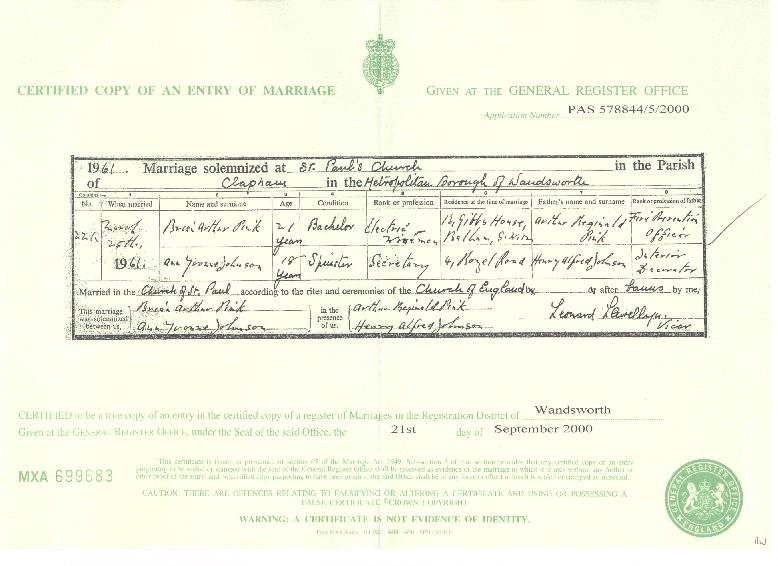 CERTIFIED COPY OF AN ENTRY OF MARRIAGE
GIVEN AT THE GENERAL REGISTER OFFICE
Application Number PAS 578844/5/2000
1961. Marriage solemnized at St. Paul's Church in the Parish
of Clapham in the Metropolitan Borough of Wandsworth
No. When married Name and surname Age Condition Rank or profession Residence at the time of marriage Father's name and surname Rank or profession of father
25th, 1961. Brian Arthur Pink 21 years Bachelor Electric Gibbs House, Balham, Arthur Reginald Pink Fire Prevention Officer
Ann Yvonne Johnson 18 years Spinster Secretary 4, Hazel Road Henry Alfred Johnson Interior Decorator
Married in the Church of St. Paul according to the rites and ceremonies of the Church of England or after banns by me,
This marriage was solemnized between us, Brian Arthur Pink Ann Yvonne Johnson in the presence of us, Arthur Reginald Pink Henry Alfred Johnson Leonard Llewellyn. Vicar
CERTIFIED to be a true copy of an entry in the certified copy of a register of Marriages in the Registration District of Wandsworth
Given at the GENERAL REGISTER OFFICE, under the Seal of the said Office, the 21st day of September 2000
MXA 699683
This certificate is issued in pursuance of section 65 of the Marriage Act 1949. Sub-section 3 of that section provides that any certified copy of an entry
purporting to be sealed or stamped with the seal of the General Register Office shall be received as evidence of the marriage to which it relates without any further or
other proof of the entry, and no certified copy purporting to have been given in the said Office shall be of any force or effect unless it is sealed or stamped as aforesaid.
CAUTION: THERE ARE OFFENCES RELATING TO FALSIFYING OR ALTERING A CERTIFICATE AND USING OR POSSESSING A
FALSE CERTIFICATE ©CROWN COPYRIGHT
WARNING: A CERTIFICATE IS NOT EVIDENCE OF IDENTITY.
GENERAL REGISTER OFFICE
ENGLAND